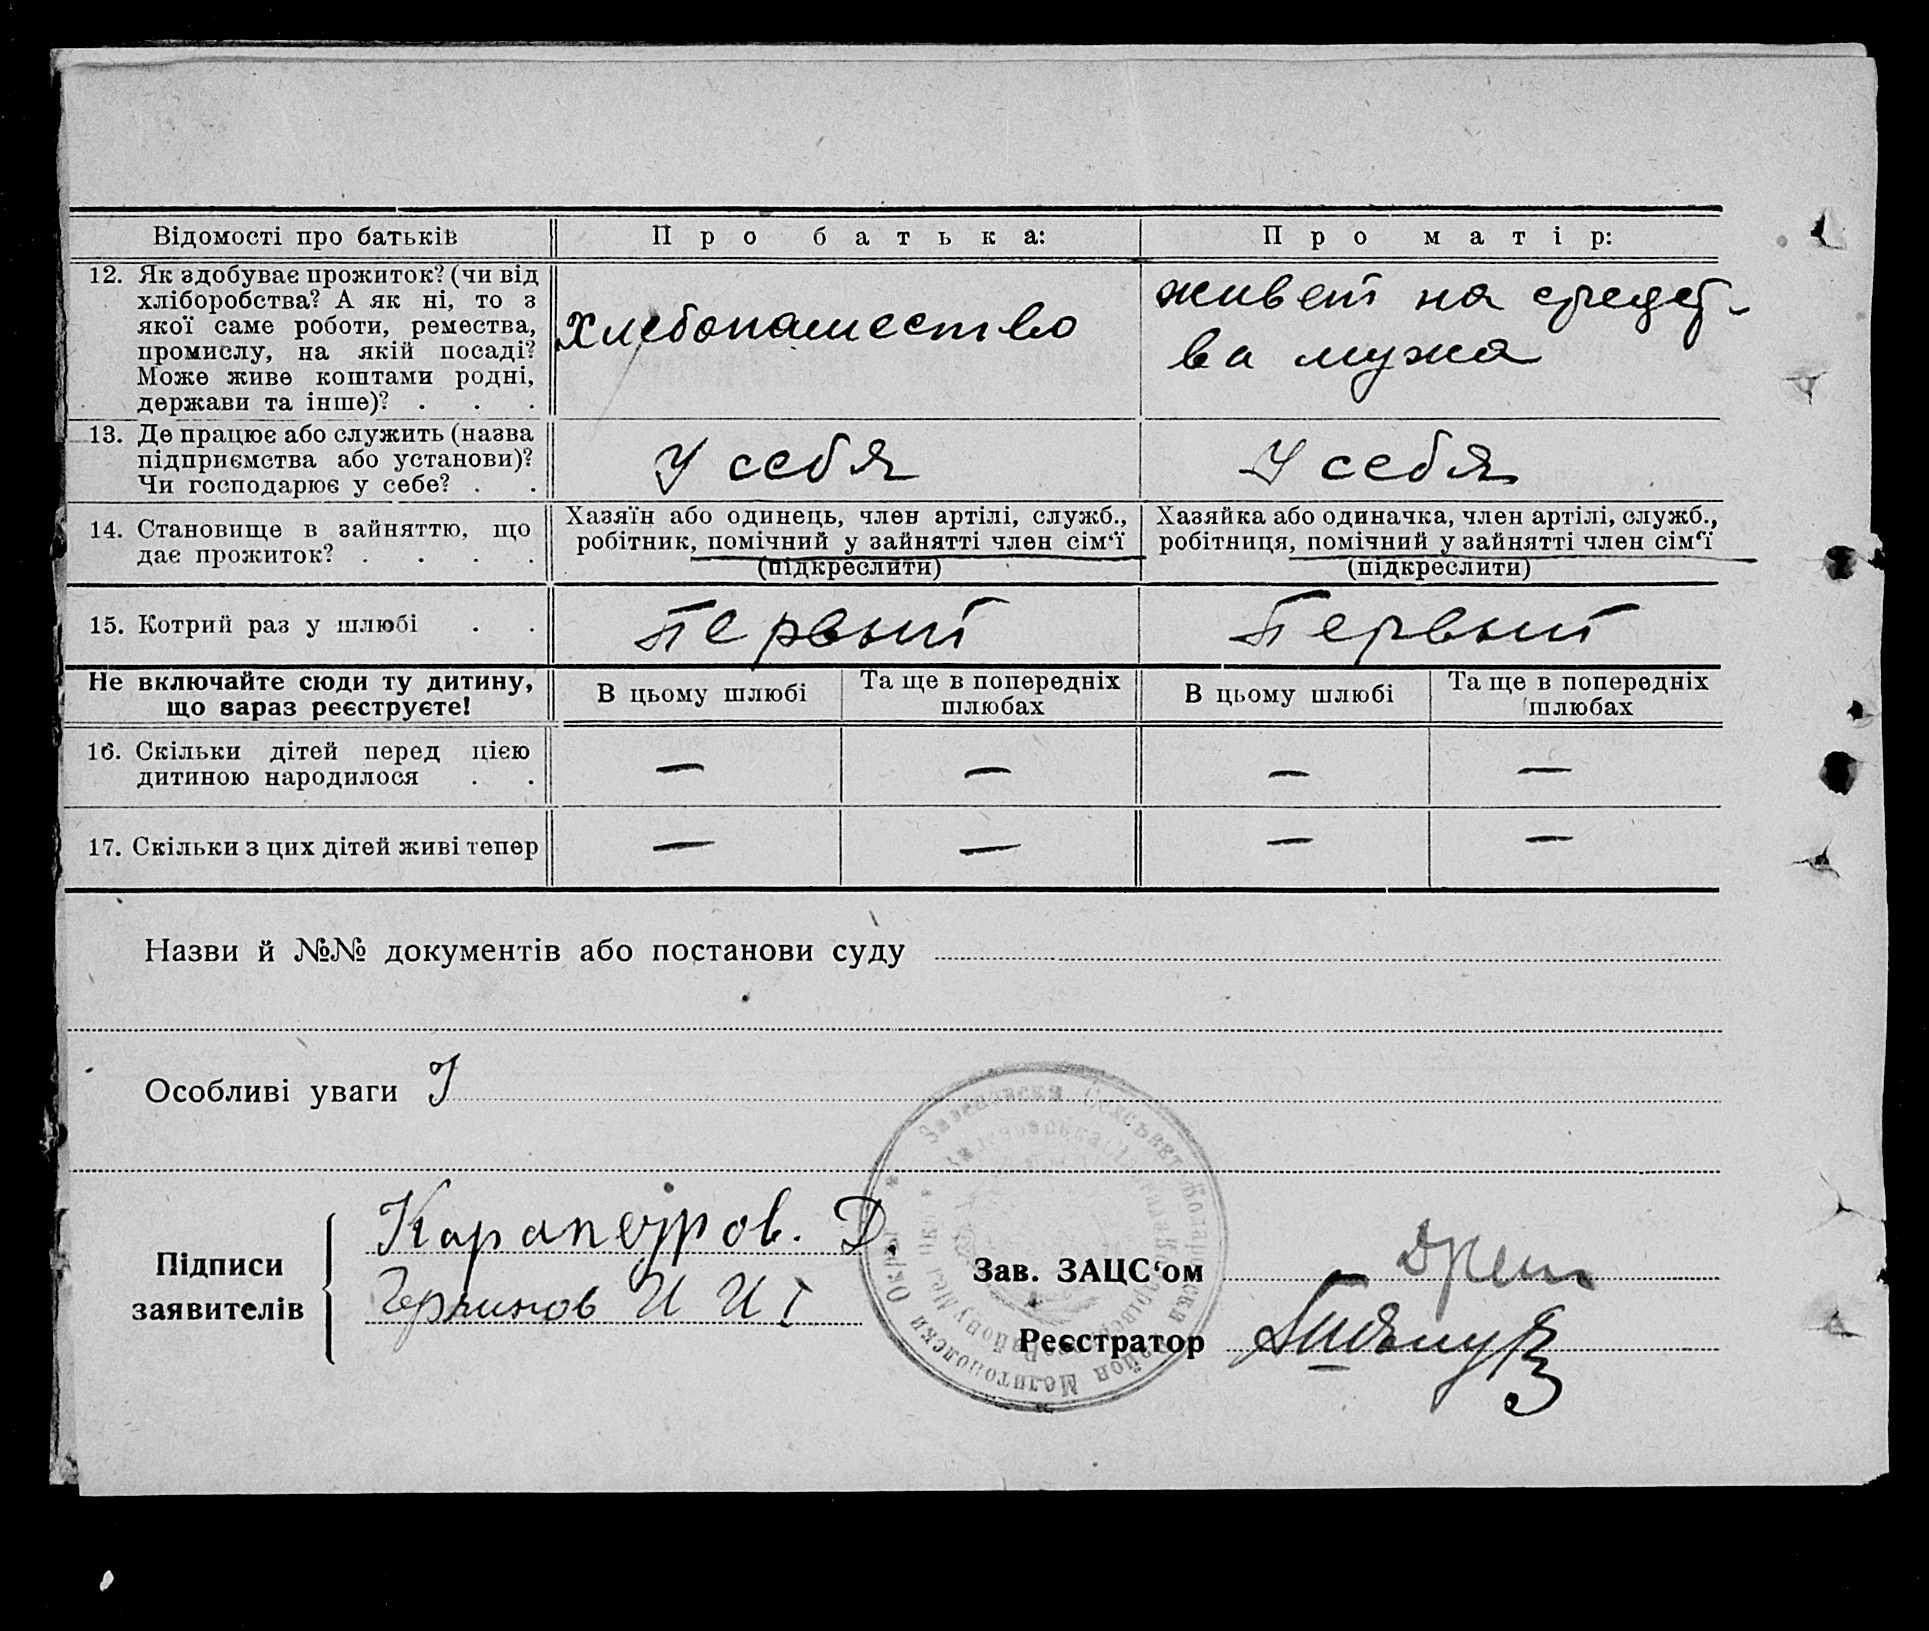 Відомості про батьків
Про батька:
Про матір:
12. Як здобуває прожиток? (чи від
хліборобства? А як ні, то з
якої саме роботи, ремества,
промислу, на якій посаді?
Може живе коштами родні,
держави та інше)? . . .
Хлебопашество
живет на средст-
ва мужа
13. Де працює або служить (назва
підприємства або установи)?
Чи господарює у себе? . .
У себя
У себя
14. Становище в зайняттю, що
дає прожиток? . . . .
Хазяїн або одинець, член артілі, служб.,
робітник, помічний у зайнятті член сім‘ї
(підкреслити)
Хазяйка або одиначка, член артілі, служб.,
робітниця, помічний у зайнятті член сім‘ї
(підкреслити)
15. Котрий раз у шлюбі . .
Первый
Первый
Не включайте сюди ту дитину,
що зараз реєструєте!
В цьому шлюбі
Та ще в попередніх
шлюбах
В цьому шлюбі
Та ще в попередніх
шлюбах
16. Скільки дітей перед цією
дитиною народилося . .
— — — —
17. Скільки з цих дітей живі тепер
— — — —
Назви й №№ документів або постанови суду
Особливі уваги
Підписи
заявителів
Карапетров. Д.
Зав. ЗАЦС‘ом
Реєстратор